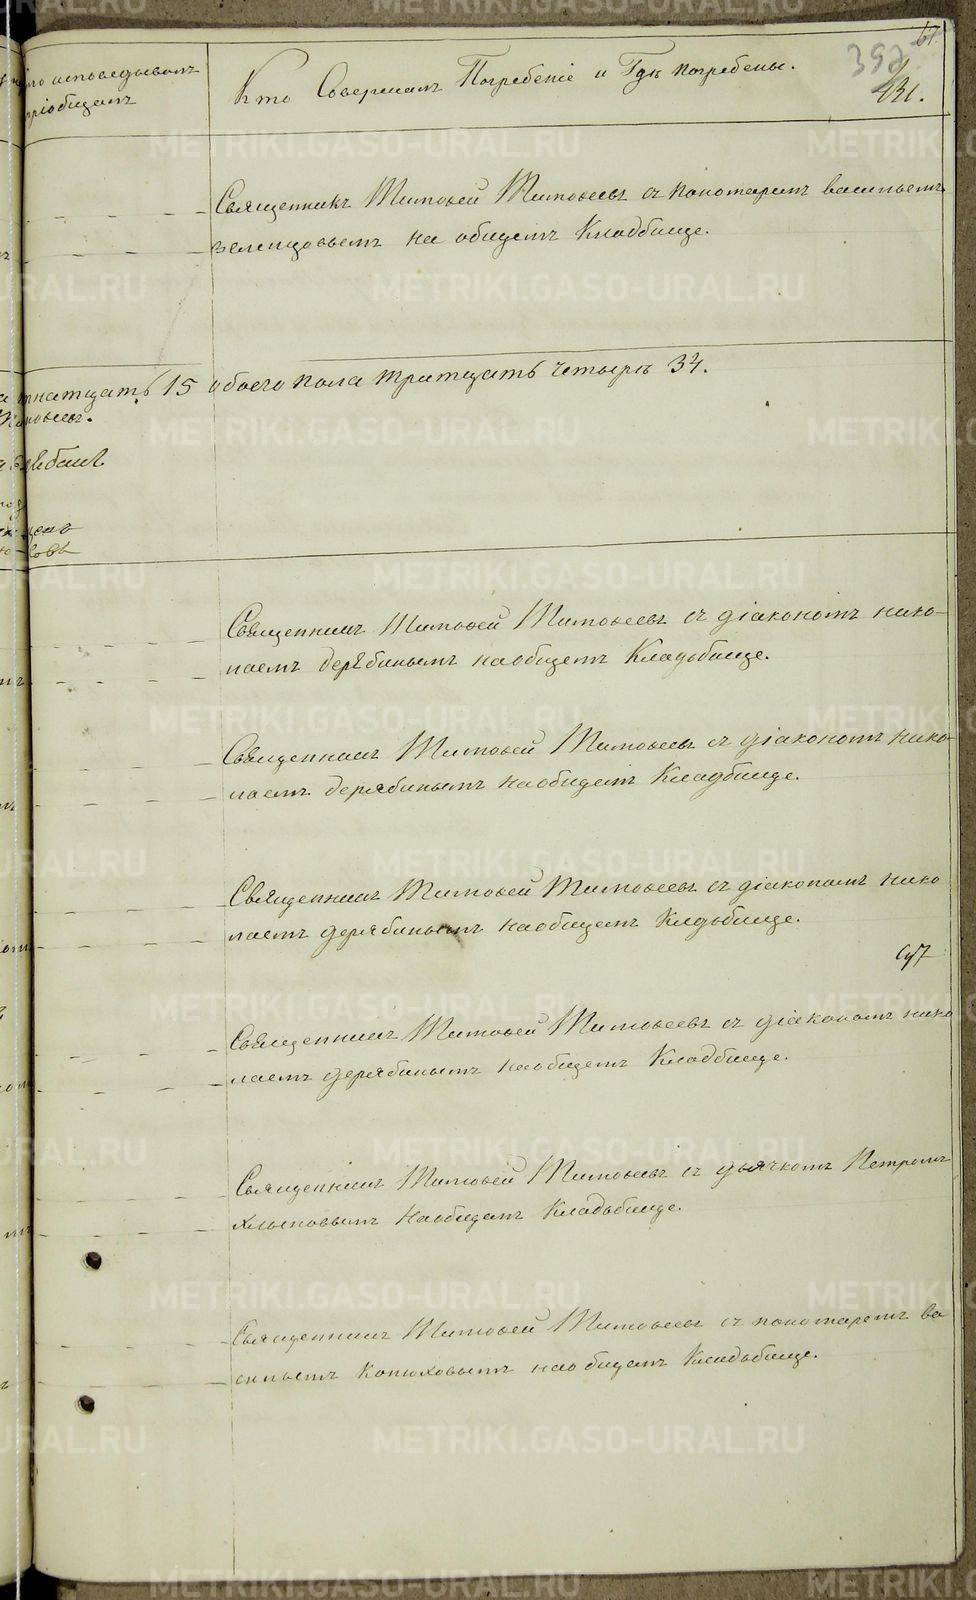 67
392
131.
исповедывалъ
пріобщалъ
Кто Совершалъ Погребеніе и Гдѣ погребены.
Священникъ Тимофей Тимофеевъ съ пономаремъ васильемъ
на общемъ Кладбище.
15 обоего пола тритцать четыре 34.
Священникъ Тимофей Тимофеевъ съ діакономъ нико-
лаемъ дерябинымъ наобщемъ Кладьбище.
Священникъ Тимофей Тимофеевъ съ діакономъ нико-
лаемъ дерябинымъ наобщемъ Кладбище.
Священникъ Тимофей Тимофеевъ съ діакономъ нико
лаемъ дерябинымъ наобщемъ Кладьбище.
Священникъ Тимофей Тимофеевъ съ діакономъ нико
лаемъ дерябинымъ наобщемъ Кладбище.
Священникъ Тимофей Тимофеевъ съ дьячкомъ Петромъ
хлыновымъ наобщемъ Кладьбище.
Священникъ Тимофей Тимофеевъ съ пономаремъ ва
сильемъ Конюховымъ наобщемъ Кладьбище.
METRIKI.GASO-URAL.RU